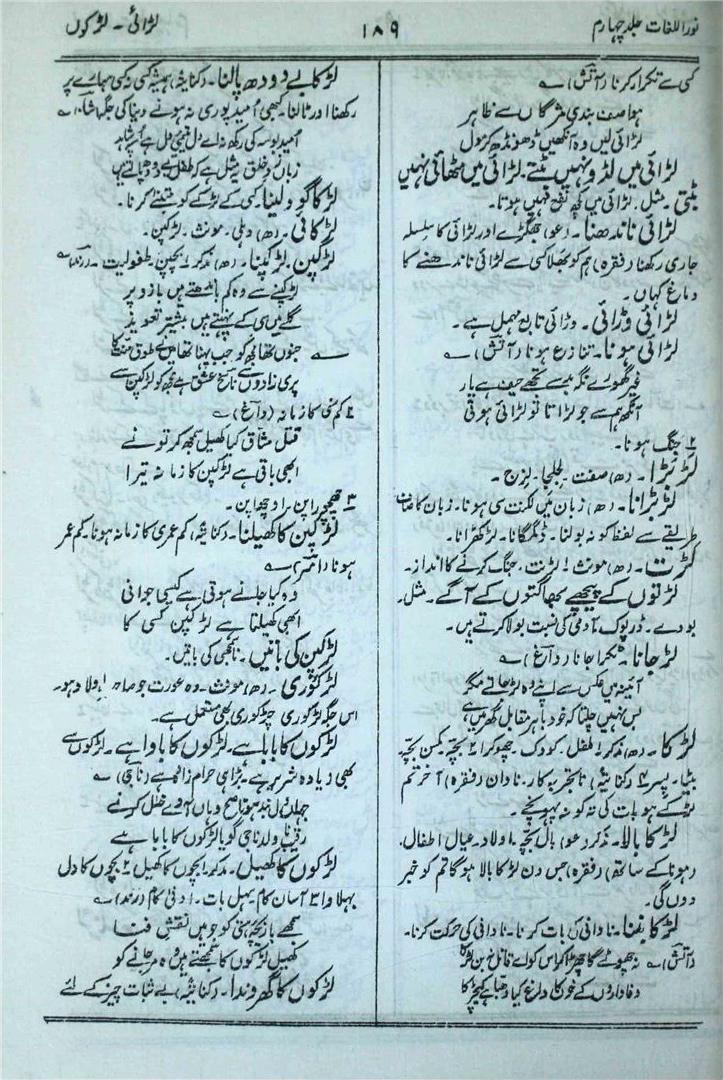 نور اللغات جلد چہارم
۱۸۹
لڑائی - لڑکوں
کسی سے تکرار کرنا (آتش) ؎
ہوا صف بندیِ مژگاں سے ظاہر
لڑائی لیں وہ آنکھیں ڈھونڈھ کر مول
لڑائی میں لڈو نہیں بٹتے۔ لڑائی میں مٹھائی نہیں
بٹتی۔ مثل۔ لڑائی میں کچھ نفع نہیں ہوتا۔
لڑائی ناندھنا۔ (عو) جھگڑے اور لڑائی کا سلسلہ
جاری رکھنا (فقرہ) ہم کو بھلا کسی سے لڑائی ناندھنے کا
دماغ کہاں۔
لڑائی وڑائی۔ وڑائی تابع مہمل ہے۔
لڑائی ہونا۔ تنازع ہونا (آتش) ؎
غیر گھورے نگہِ بد سے تجھے حیف ہے یار
آنکھ ہم سے جو لڑاتا تو لڑائی ہوتی
۲ جنگ ہونا۔
لڑبڑا۔ (ھ) صفت۔ لجلجا۔ لزج۔
لڑبڑانا۔ (ھ) زبان میں لکنت سی ہونا۔ زبان کا صاف
طریقے سے لفظ کو نہ بولنا۔ ڈگمگانا۔ لڑکھڑانا۔
لڑت۔ (ھ) مونث ۱ لڑنت۔ جنگ کرنے کا انداز۔
لڑتوں کے پیچھے بھاگتوں کے آگے۔ مثل۔
بودے۔ ڈرپوک آدمی کی نسبت بولا کرتے ہیں۔
لڑ جانا۔ ٹکرا جانا (داغ) ؎
آئینہ میں عکس سے اپنے وہ لڑ جاتے مگر
بس نہیں چلتا کہ خود باہر مقابل گھر میں ہے
لڑکا۔ (ھ) مذکر ۱ طفل۔ کودک۔ چھوکرا ۲ بچہ۔ کمسن بچہ
بیٹا۔ پسر ۴ (کنایۃً) ناتجربہ کار۔ نادان (فقرہ) آخر تم
لڑکے ہو بات کی تہ کو نہ پہونچے۔
لڑکا بالا۔ مذکر (عو) بال بچہ۔ اولاد۔ عیال اطفال۔
(ہونا کے ساتھ) (فقرہ) جس دن لڑکا بالا ہوگا تم کو خبر
دوں گی۔
لڑکا بننا۔ نادانی کی بات کرنا۔ نادانی کی حرکت کرنا۔
(آتش) ؎ نہ چھوٹے گا چھڑا کر اس کو اے قاتل نہ بن لڑکا
وفاداروں کے خوں کا داغ کیا دھبا ہے کیچڑ کا
لڑکا بے دودھ پالنا۔ (کنایۃً) ہمیشہ کسی نہ کسی سہارے پر
رکھنا اور ٹالنا۔ کبھی اُمید پوری نہ ہونے دینا کی جگہ (شاد) ؎
اُمیدِ بوسہ کی رکھ نہ اے دل
زباں زدِ خلق یہ مثل ہے کہ طفل بے دودھ پالتے ہیں
لڑکا گود لینا کسی کے لڑکے کو متبنّٰے کرنا۔
لڑکائی۔ (ھ) دہلی۔ مونث۔ لڑکپن۔
لڑکپن۔ لڑکپنا۔ (ھ) مذکر ۱ بچپن۔ طفولیت۔ (رند) ؎
لڑکپنے سے وہ کم باندھتے ہیں بازو پر
گلے میں سی کے پہنتے ہیں بیشتر تعویذ
؎ جنوں تھا مجھ کو جب پہنا تھا میں نے طوق منت کا
پری زادوں سے ناسخ عشق ہے مجھ کو لڑکپن سے
۲ کم سنی کا زمانہ (داغ) ؎
قتل عشاق کیا کھیل سمجھ کر تو نے
ابھی باقی ہے لڑکپن کا زمانہ تیرا
۳ چھچھورا پن۔ اوچھا پن۔
لڑکپن کا کھیلنا۔ (کنایۃً) کم عمری کا زمانہ ہونا۔ کم عمر
ہونا (امیر) ؎
وہ کیا جانے ہوتی ہے کیسی جوانی
ابھی کھیلتا ہے لڑکپن کسی کا
لڑکپن کی باتیں۔ ناسمجھی کی باتیں۔
لڑکوری۔ (ھ) مونث۔ وہ عورت جو صاحب اولاد ہو۔
اس جگہ لڑکوری چڑکوری بھی مستعمل ہے۔
لڑکوں کا بابا ہے۔ لڑکوں کا باوا ہے۔ لڑکوں سے
بھی زیادہ شریر ہے۔ بڑا ہی حرام زادہ ہے (ناجی) ؎
جہاں دل بند ہو ناصح وہاں آوے خلل کرنے
رقیبِ ناجی گویا لڑکوں کا بابا ہے
لڑکوں کا کھیل۔ مذکر ۱ بچوں کا کھیل ۲ بچوں کا دل
بہلاوا ۳ آسان کام۔ سہل بات۔ ادنیٰ کام (رند) ؎
سمجھے بازیچۂ ہستی کو جو ہیں نقشِ فنا
کھیل لڑکوں کا سمجھتے ہیں وہ مر جانے کو
لڑکوں کا گھروندا۔ (کنایۃً) بے ثبات چیز کے لئے